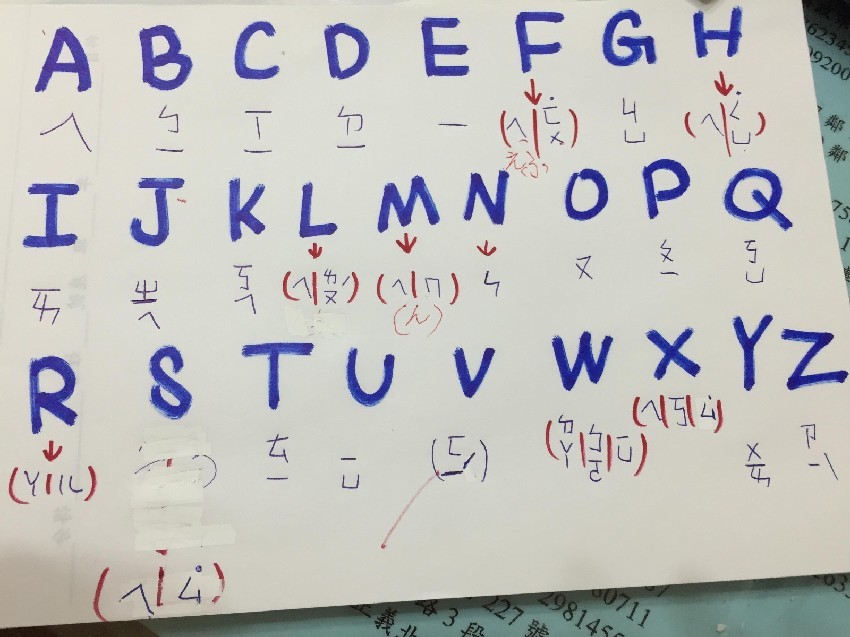 A B C D E F G H
ㄟ ㄅㄧ ㄒㄧ ㄉㄧ ㄧ (ㄟ|ㄈㄨ˙) ㄐㄩ (ㄟ|ㄑㄩ˙)
えふ
I J K L M N O P Q
ㄞ ㄓㄟ ㄎㄟ (ㄟ|ㄌㄡˊ) (ㄟ|ㄇ) ㄣ ㄡ ㄆㄧ ㄎㄩ
(ん)
R S T U V W X Y Z
(ㄚ|ㄦ) ㄊㄧ ㄧㄩ (ㄈㄧ) (ㄉㄚ|ㄅㄛ|ㄩ) (ㄟ|ㄎ|ㄙ˙) ㄨㄞ ㄗㄧˋ
(ㄟ|ㄙ˙)
正義北路3段227號
2981456
60711